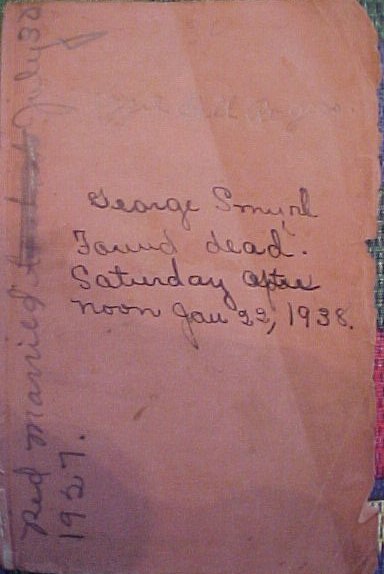 George Smyrl
Found dead.
Saturday after
noon Jan 22, 1938.
Red Married July 30
1927.